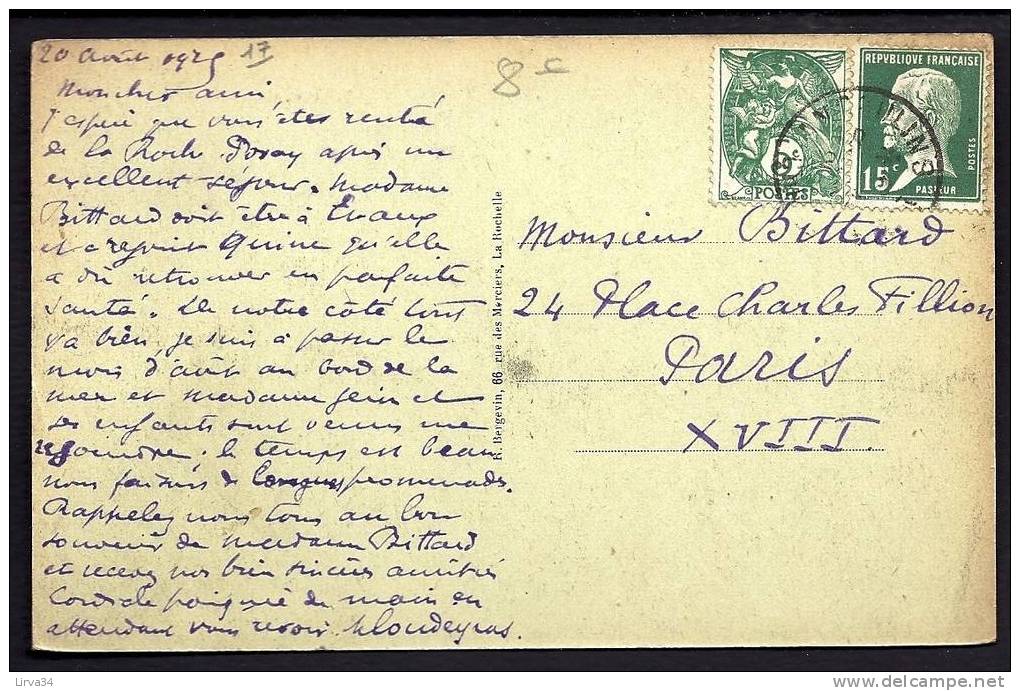 20 Août 1925
17
8 €
Mon cher ami
J'espère que vous êtes rentré
de la Roche Posay après un
excellent séjour. Madame
Bittard doit être à Evaux
et a rejoint qu'elle
a dû retrouver en parfaite
santé. De notre côté tout
va bien, je suis à passer le
mois d'août au bord de la
mer et madame et
ses enfants sont venus me
rejoindre. le temps est beau
nous faisons de longues promenades.
Rappelez nous tous au bon
souvenir de madame Bittard
et recevez nos bien sincères amitiés
Cordiale poignée de main en
attendant vous revoir.
R. Bergevin, 66, rue des Merciers, La Rochelle
5c
POSTES
REPUBLIQUE FRANÇAISE
POSTES
15c
PASTEUR
Monsieur Bittard
24 Place Charles Fillion
Paris
XVIII.
Lirva34
www.delcampe.net